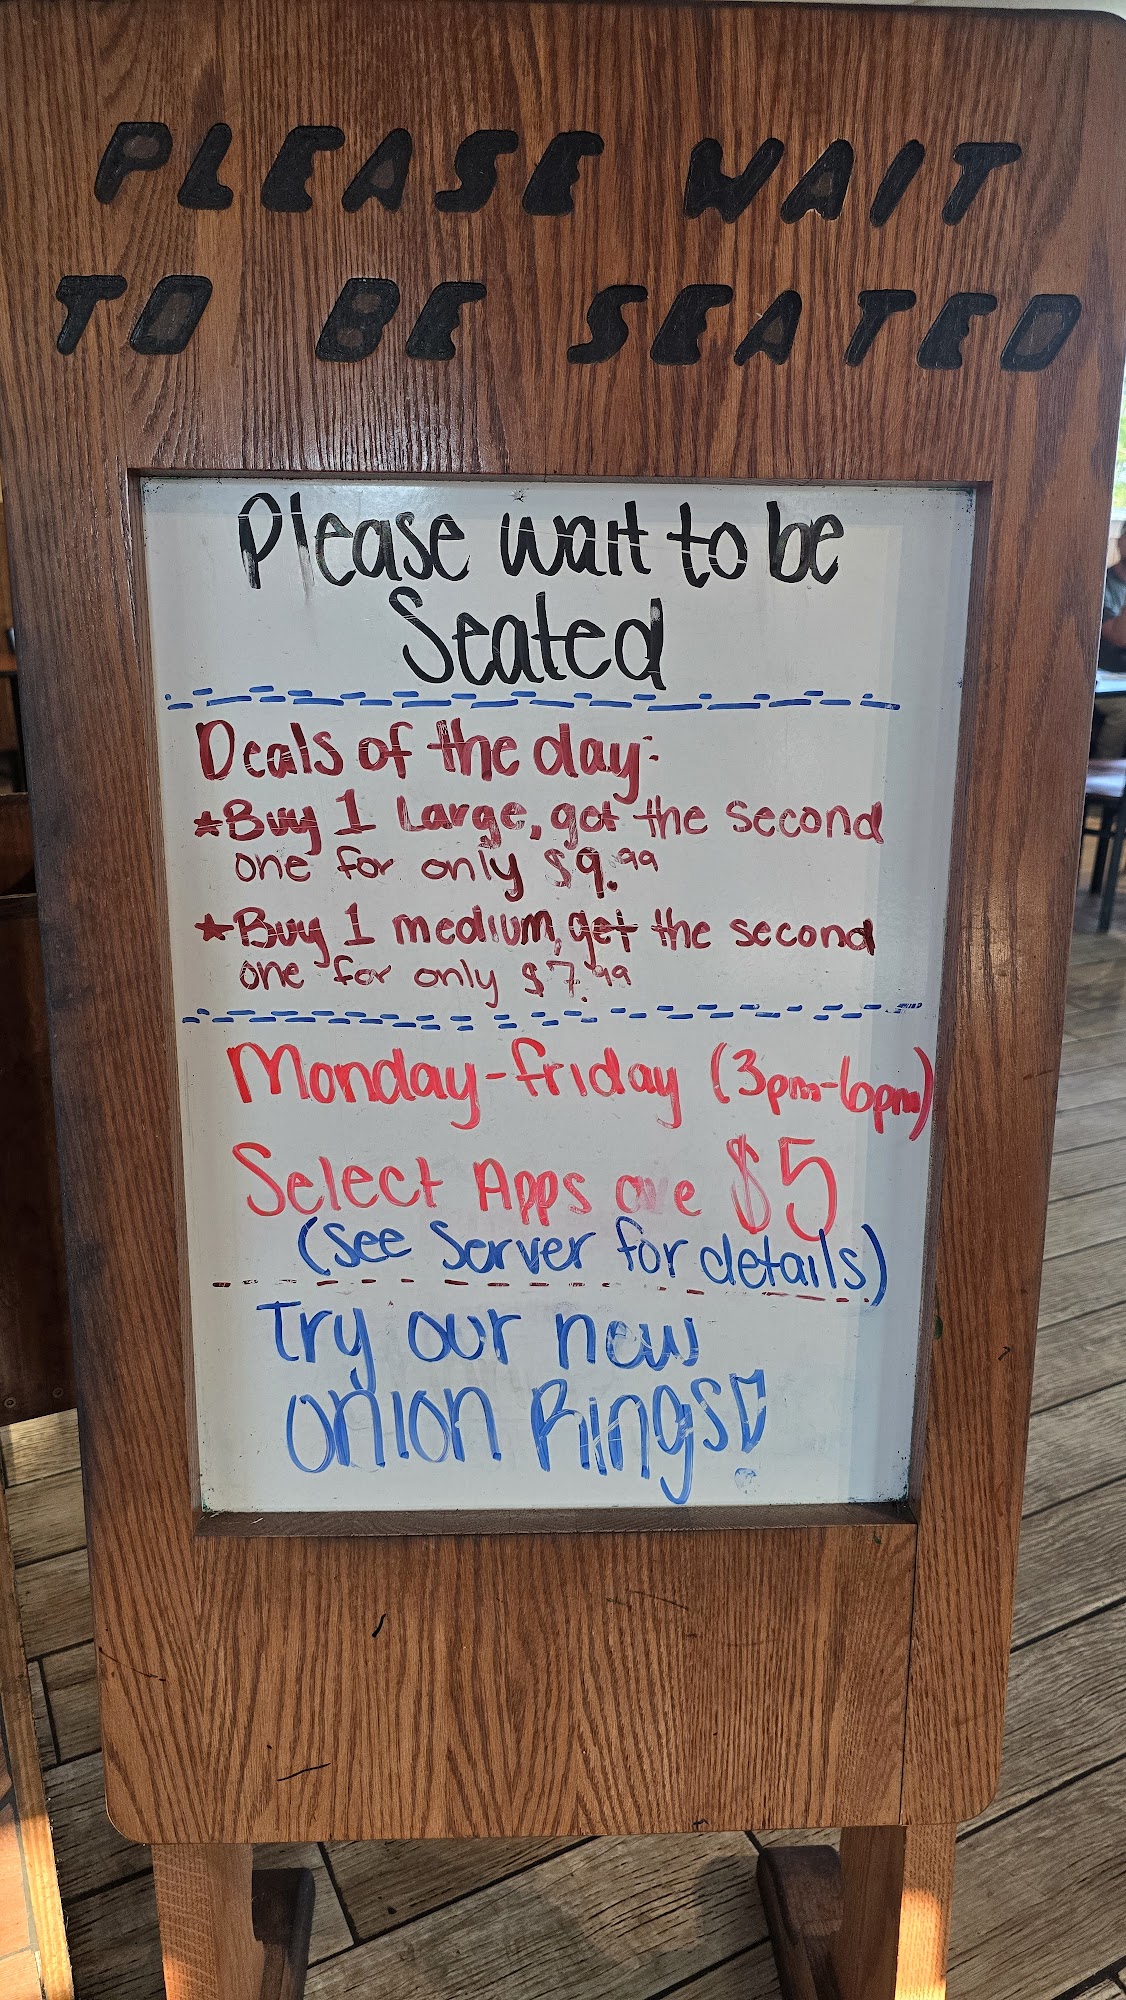 PLEASE WAIT
TO BE SEATED
Please wait to be
Seated
Deals of the day:
*Buy 1 Large, get the second
one for only $9.99
*Buy 1 medium, get the second
one for only $7.99
Monday-friday (3pm-6pm)
Select Apps are $5
(See Server for details)
Try our new
Onion Rings!